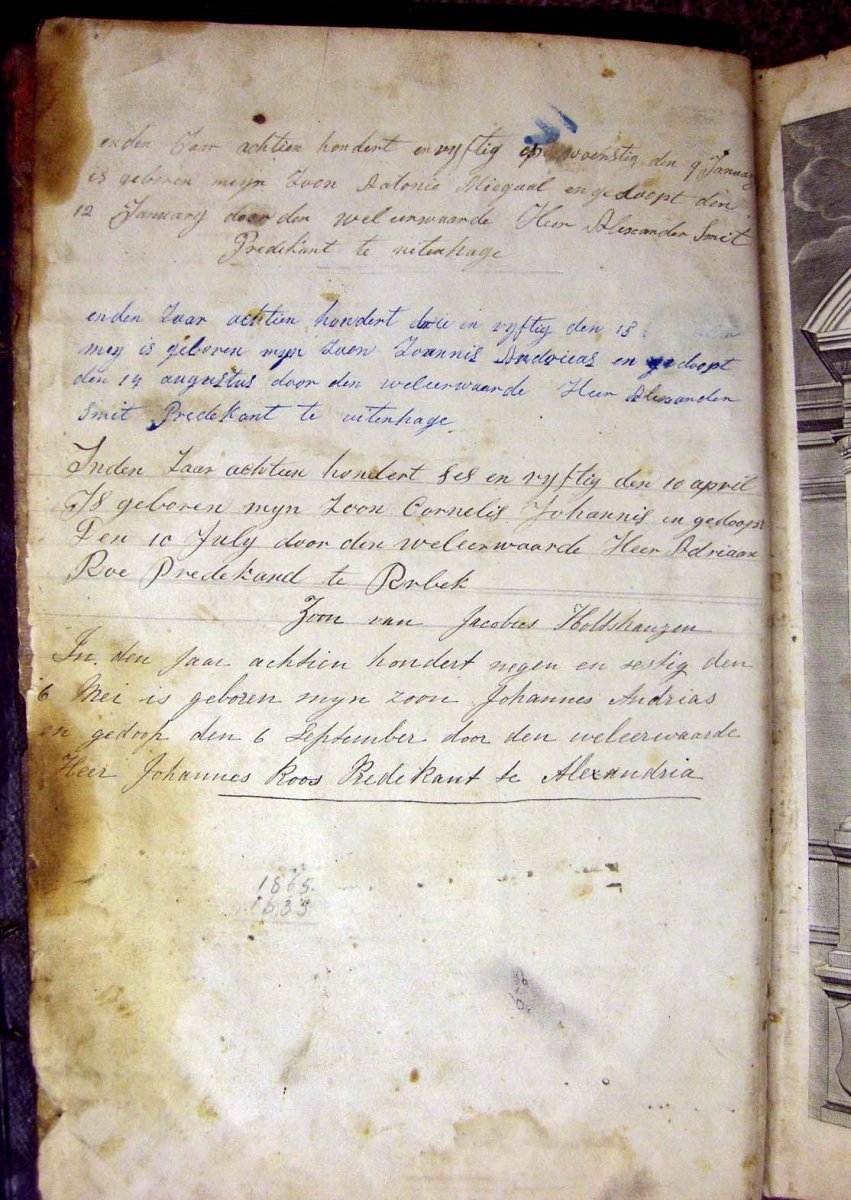 enden Jaar achtien hondert en vyftig op woenstig den 9 January
is geboren meyn Zoon Antonie Miegaal en gedoopt den
12 January door den weleerwaarde Heer Alexander Smit
Predekant te uitenhage
enden Zaar achtien hondert drie en vyftig den 18
mey is geboren myn Zoon Zoannis Andrieas en gedoopt
den 14 augustus door den weleerwaarde Heer Alexander
Smit Predekant te uitenhage
Inden Zaar achtien hondert ses en vyftig den 10 april
IS geboren myn Zoon Cornelis Johannis en gedoopt
Den 10 July door den weleerwaarde Heer Adriaan
Roe Predekand te
Zoon van Jacobus Holtshauzen
In den Jaar achtien hondert negen en sestig den
6 Mei is geboren myn zoon Johannes Andrias
en gedoop den 6 September door den weleerwaarde
Heer Johannes Roos Predekant te Alexandria
1865
1633